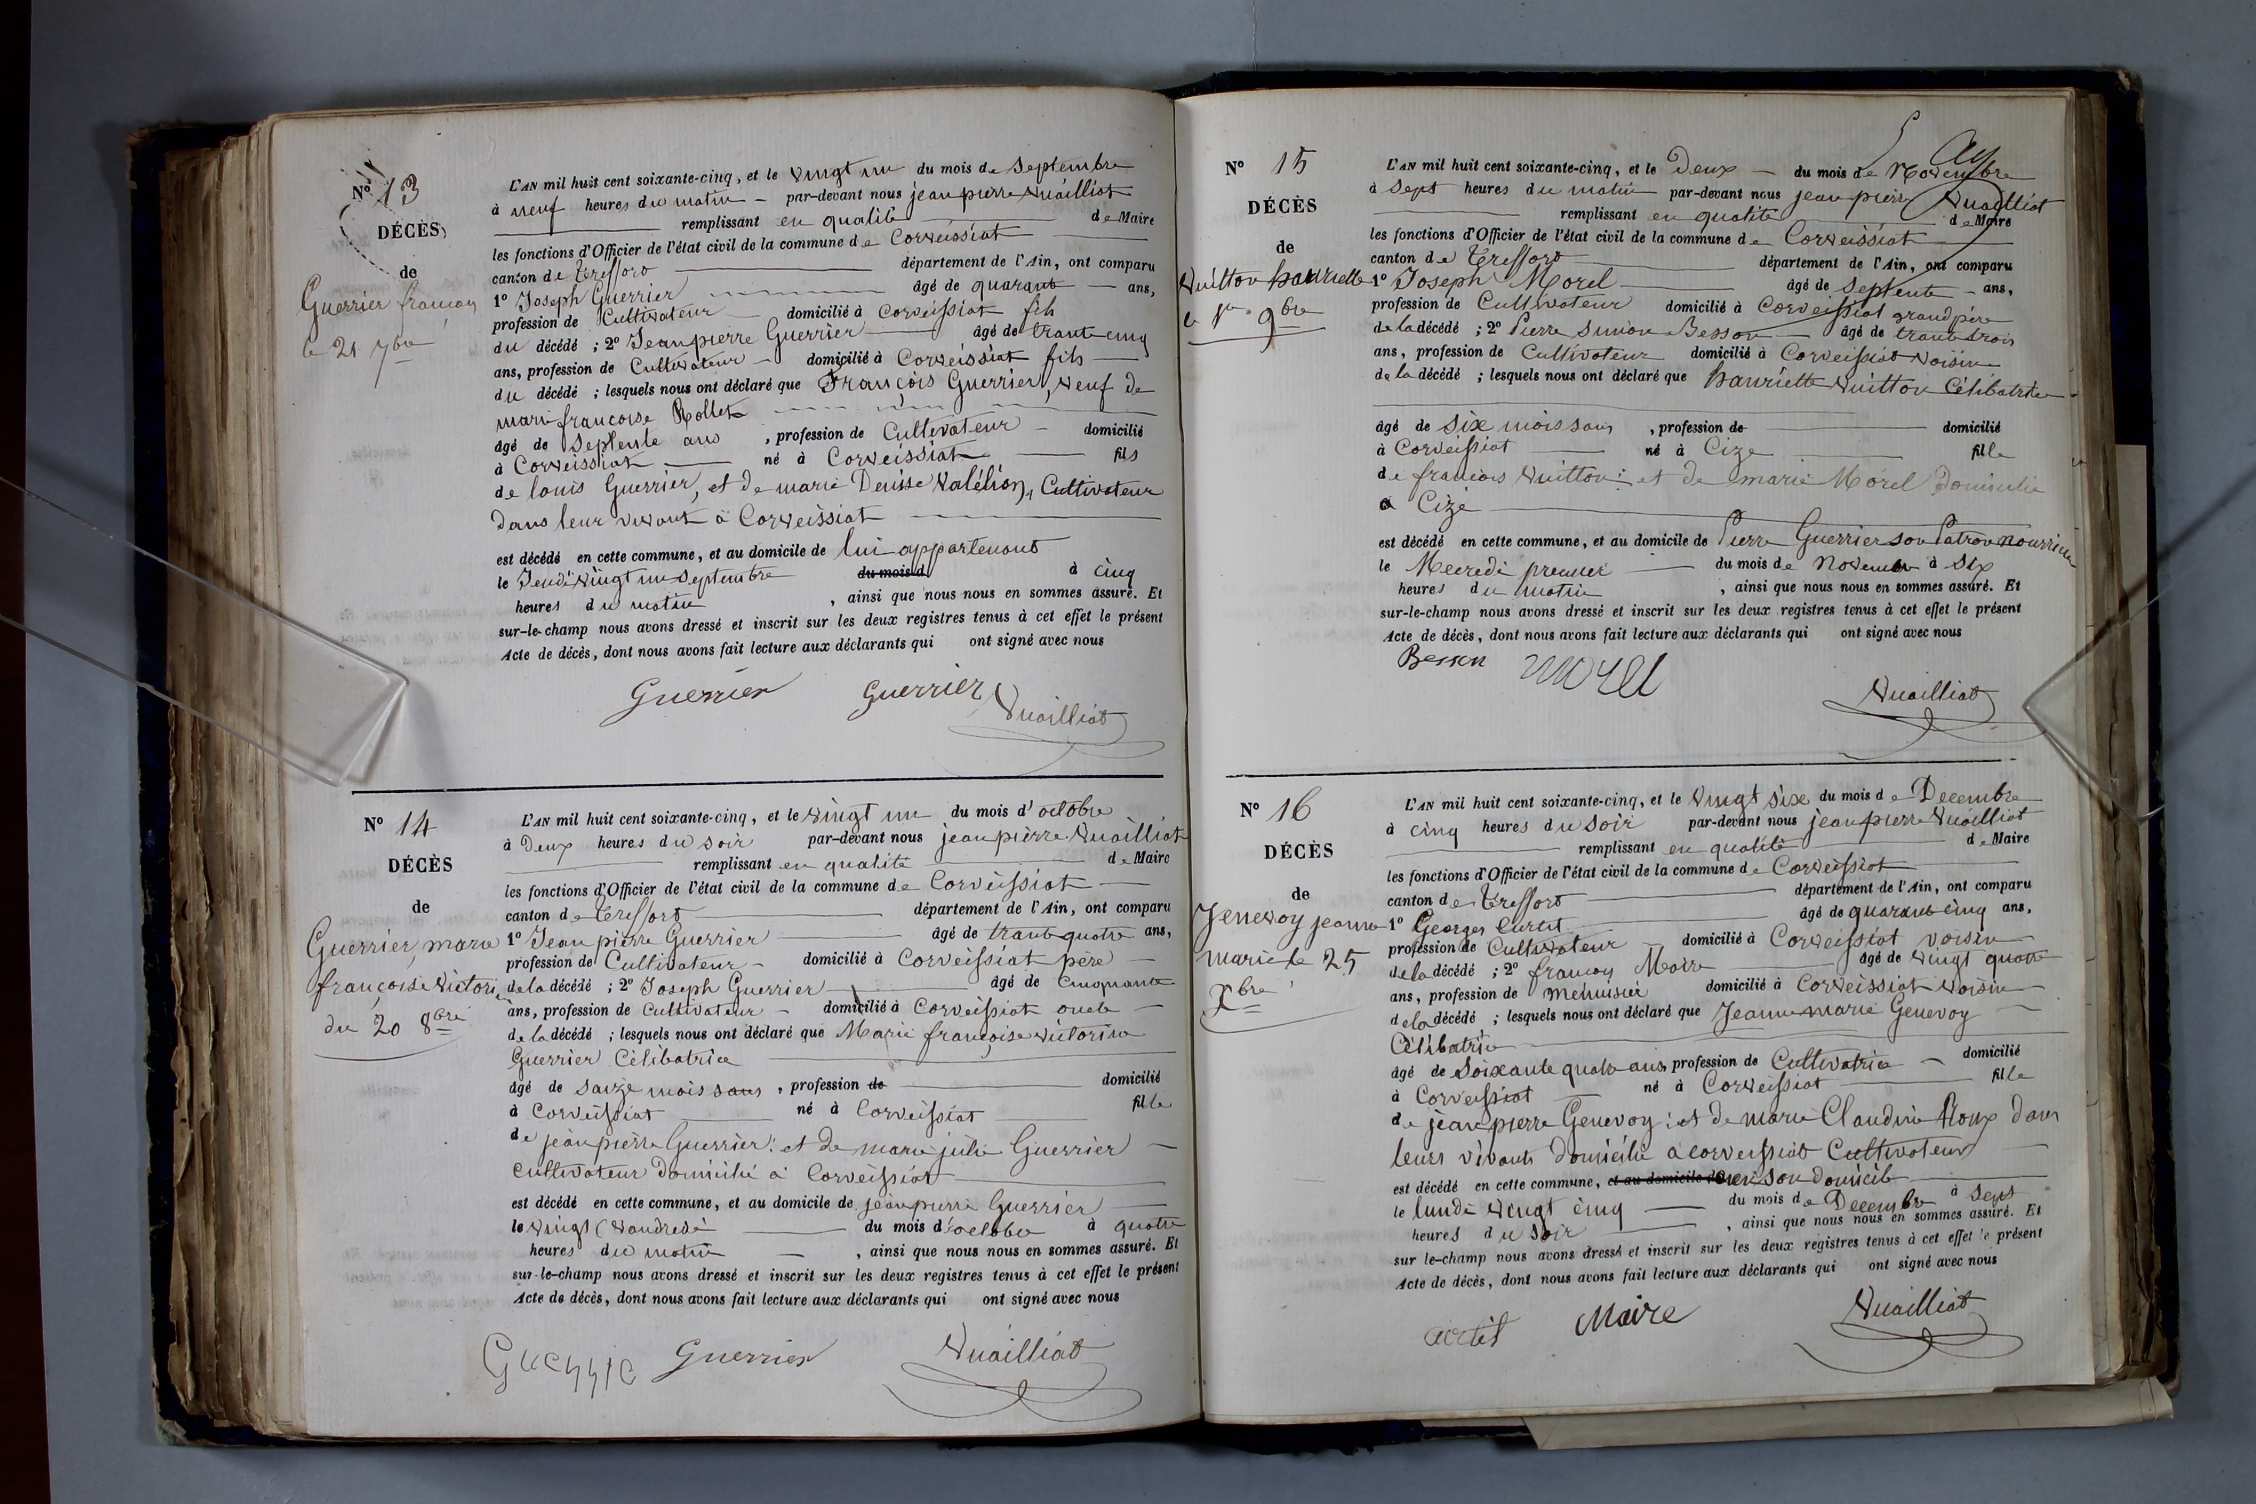 N° 13
DÉCÈS
de
Guerrier françois
le 21 7bre
L'AN mil huit cent soixante-cinq, et le vingt un du mois de Septembre
à neuf heures du matin par-devant nous jean pierre Vuailliat
remplissant en qualité de Maire
les fonctions d'Officier de l'état civil de la commune de Corveissiat
canton de Treffort département de l'Ain, ont comparu
1° Joseph Guerrier âgé de quarante ans,
profession de Cultivateur domicilié à Corveissiat fils
du décédé ; 2° Jean pierre Guerrier âgé de trante cinq
ans, profession de Cultivateur domicilié à Corveissiat fils
du décédé ; lesquels nous ont déclaré que François Guerrier, veuf de
marie françoise Rollet
âgé de Septente ans , profession de Cultivateur domicilié
à Corveissiat né à Corveissiat fils
de louis Guerrier, et de marie Denise Valélion, Cultivateur
dans leur vivant à Corveissiat
est décédé en cette commune, et au domicile de lui appartenant
le Jeudi vingt un Septembre du mois d à cinq
heures du matin , ainsi que nous nous en sommes assuré. Et
sur-le-champ nous avons dressé et inscrit sur les deux registres tenus à cet effet le présent
Acte de décès, dont nous avons fait lecture aux déclarants qui ont signé avec nous
Guerrier Guerrier Vuailliat
N° 14
DÉCÈS
de
Guerrier, marie
françoise Victori
du 20 8bre
L'AN mil huit cent soixante-cinq, et le vingt un du mois d'octobre
à Deux heures du soir par-devant nous jean pierre Vuailliat
remplissant en qualité de Maire
les fonctions d'Officier de l'état civil de la commune de Corveissiat
canton de Treffort département de l'Ain, ont comparu
1° Jean pierre Guerrier âgé de trante quatre ans,
profession de Cultivateur domicilié à Corveissiat père
de la décédé ; 2° Joseph Guerrier âgé de Cinquante
ans, profession de Cultivateur domicilié à Corveissiat oncle
de la décédé ; lesquels nous ont déclaré que Marie françoise victorine
Guerrier Célibatrice
âgé de saize mois sans , profession de domicilié
à Corveissiat né à Corveissiat fille
de jean pierre Guerrier : et de marie julie Guerrier
Cultivateur Domicilié à Corveissiat
est décédé en cette commune, et au domicile de jean pierre Guerrier
le vingt (vandredi du mois d'octobre à quatre
heures du matin , ainsi que nous nous en sommes assuré. Et
sur-le-champ nous avons dressé et inscrit sur les deux registres tenus à cet effet le présent
Acte de décès, dont nous avons fait lecture aux déclarants qui ont signé avec nous
Guerrie Guerrier Vuailliat
N° 15
DÉCÈS
de
Vuitton hanriette
le 1er 9bre
L'AN mil huit cent soixante-cinq, et le Deux du mois de Novembre
à Sept heures du matin par-devant nous jean pierre Vuailliat
remplissant en qualité de Maire
les fonctions d'Officier de l'état civil de la commune de Corveissiat
canton de Treffort département de l'Ain, ont comparu
1° Joseph Morel âgé de Septente ans,
profession de Cultivateur domicilié à Corveissiat grand père
de la décédé ; 2° Pierre Simon Besson âgé de trante trois
ans, profession de Cultivateur domicilié à Corveissiat Voisin
de la décédé ; lesquels nous ont déclaré que hanriette Vuitton Célibatrice
âgé de six mois sans , profession de domicilié
à Corveissiat né à Cize fille
de françois Vuitton : et de marie Morel Domicilié
à Cize
est décédé en cette commune, et au domicile de Pierre Guerrier son Patron nourricier
le Mecredi premier du mois de Novembre à Six
heures du matin , ainsi que nous nous en sommes assuré. Et
sur-le-champ nous avons dressé et inscrit sur les deux registres tenus à cet effet le présent
Acte de décès, dont nous avons fait lecture aux déclarants qui ont signé avec nous
Besson morel
Vuailliat
N° 16
DÉCÈS
de
Jenevoy jeanne
marie le 25
Xbre
L'AN mil huit cent soixante-cinq, et le vingt six du mois de Decembre
à cinq heures du soir par-devant nous jean pierre Vuailliat
remplissant en qualité de Maire
les fonctions d'Officier de l'état civil de la commune de Corveissiat
canton de Treffort département de l'Ain, ont comparu
1° Georges Curtit âgé de quarante cinq ans,
profession de Cultivateur domicilié à Corveissiat voisin
de la décédé ; 2° françois Maire âgé de vingt quatre
ans, profession de menuisier domicilié à Corveissiat Voisin
de la décédé ; lesquels nous ont déclaré que Jeanne marie Genevoy
Célibatrice
âgé de Soixante quatre ans, profession de Cultivatrice domicilié
à Corveissiat né à Corveissiat fille
de jean pierre Genevoy : et de marie Claudine Roux dans
leurs vivants Domicilié à corveissiat Cultivateur
est décédé en cette commune, et au domicile d en son Domicile
le lundi vingt cinq du mois de Decembre à Sept
heures du soir , ainsi que nous nous en sommes assuré. Et
sur le-champ nous avons dressé et inscrit sur les deux registres tenus à cet effet le présent
Acte de décès, dont nous avons fait lecture aux déclarants qui ont signé avec nous
Maire Vuailliat